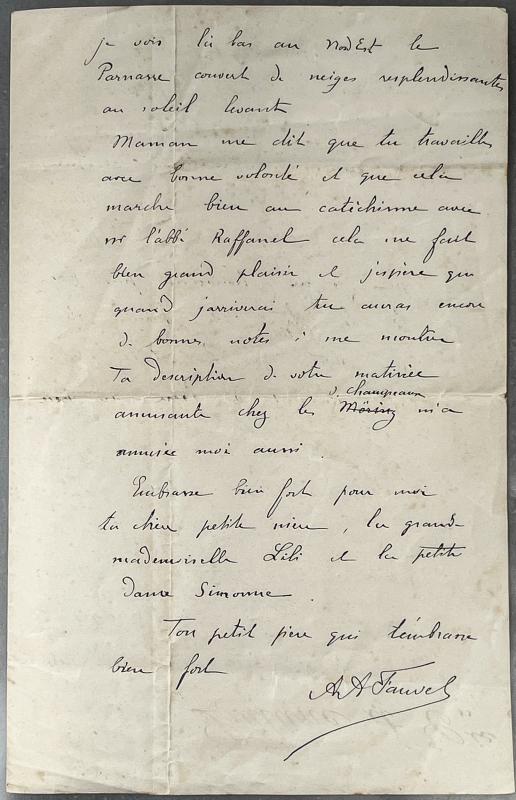 je vois là bas au Nord Est le
Parnasse couvert de neiges resplendissantes
au soleil levant
Maman me dit que tu travailles
avec bonne volonté et que cela
marche bien au catéchisme avec
mr l'abbé Raffanel cela me fait
bien grand plaisir et j'espère que
quand j'arriverai tu auras encore
de bonnes notes à me montrer
Ta description de votre matinée
de Champeaux
amusante chez les Möring m'a
amusée moi aussi.
Embrasse bien fort pour moi
ta chère petite mère, la grande
mademoiselle Lili et la petite
dame Simonne
Ton petit père qui t'embrasse
bien fort
A A Fauvel